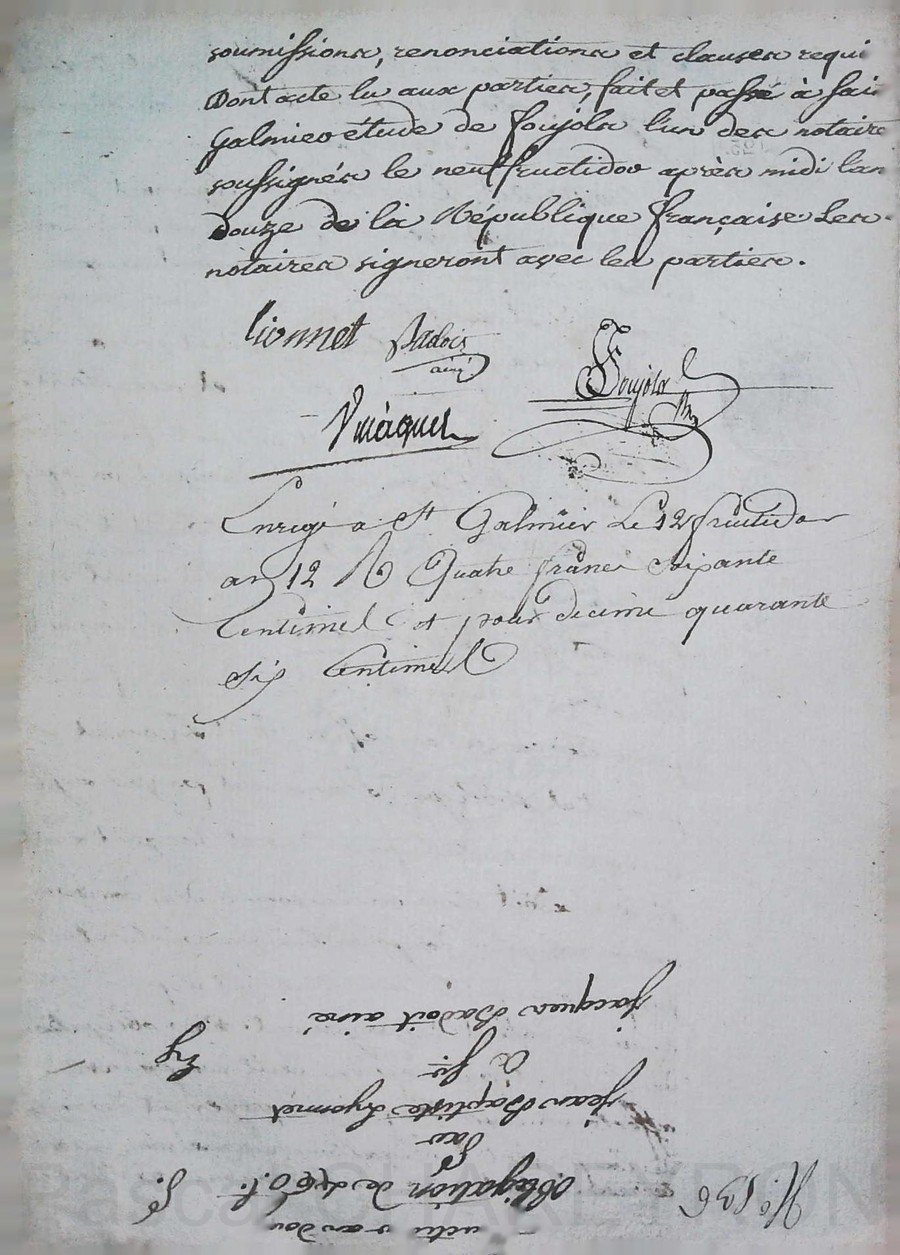 soumissions, renonciations et clauses requi
Dont acte lu aux parties, fait et passé à sai
Galmier étude de foujols l'un des notaire
soussignés le neuf fructidor après midi l'an
Douze de la République française Les
notaires signeront avec les parties.
Lionnet Badois
ainé
Foujols
Vincquel
Enregé a St Galmier Le 12 fructidor
an 12 R Quatre francs Soixante
Centimes et pour decime quarante
Six Centimes
N° 136
Obligation de 460. f.
Par
Jean Baptiste Lyonnet
a Sr
Jacques Badoit ainé
Pascal CHAREYRON